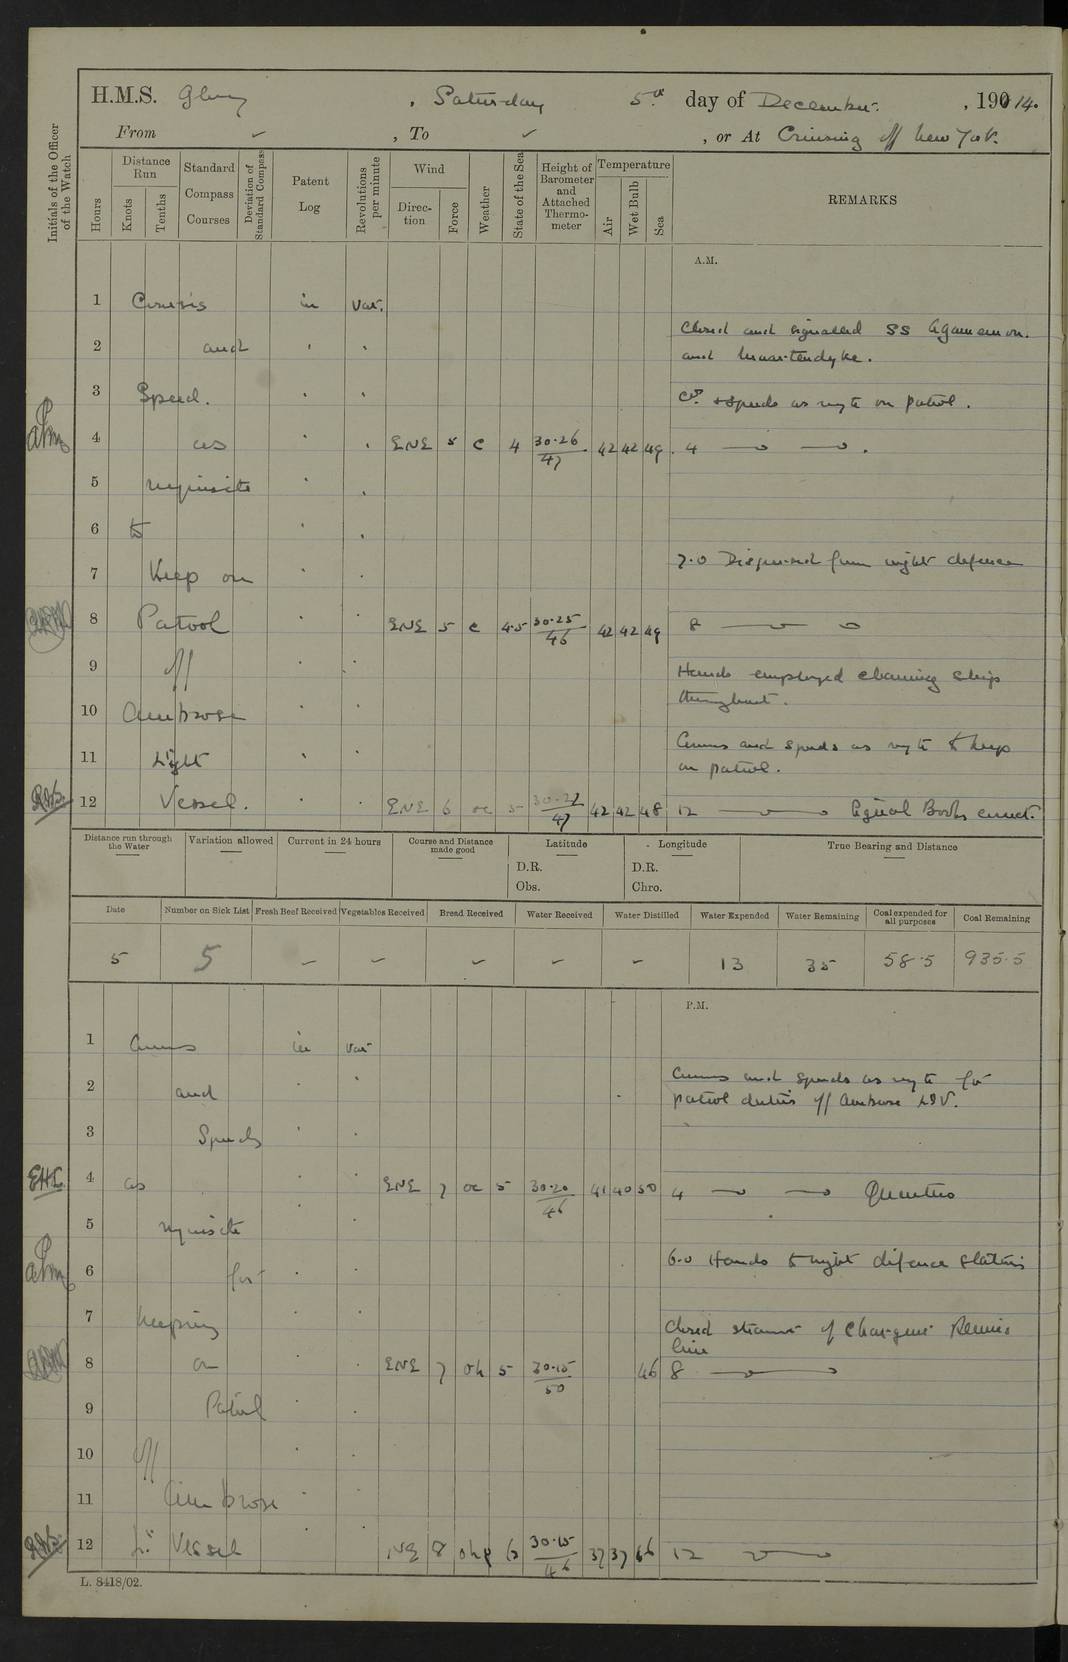 H.M.S. Glory , Saturday 5th day of December , 1914.
From ✓ , To ✓ , or At Cruising off New York.
Initials of the Officer of the Watch
Hours
Distance Run
Knots
Tenths
Standard Compass Courses
Deviation of Standard Compass
Patent Log
Revolutions per minute
Wind
Direction
Force
Weather
State of the Sea
Height of Barometer and Attached Thermometer
Temperature
Air
Wet Bulb
Sea
REMARKS
A.M.
1 Courses in var.
2 and Closed and signalled SS Agamemnon.
and
3 Speed. Cos & speeds as nyte on patrol.
4 as ENE 5 c 4 30.26/47 42 42 49 4
5 requisite
6 to
7 Keep on 7.0 Dispersed from night defence
8 Patrol ENE 5 c 4.5 30.25/46 42 42 49 8
9 off Hands employed cleaning ship
throughout.
10 Ambrose
11 Light Courses and speeds as nyte to keep
on patrol.
12 Vessel. ENE 6 oc 5 47 42 42 48 12 Signal Books correct.
Distance run through the Water
Variation allowed
Current in 24 hours
Course and Distance made good
Latitude
D.R.
Obs.
Longitude
D.R.
Chro.
True Bearing and Distance
Date Number on Sick List Fresh Beef Received Vegetables Received Bread Received Water Received Water Distilled Water Expended Water Remaining Coal expended for all purposes Coal Remaining
5 5 – – – – – 13 35 58.5 935.5
P.M.
1 Courses in var
2 and Courses and speeds as nyte for
patrol duties off Ambrose L.V.
3 Speeds
EHL 4 as ENE 7 oc 5 30.20/46 41 40 50 4 Quarters
5 requisite
6 for 6.0 Hands to night defence stations
7 keeping Closed steamer of Chargeurs Reunis
line
8 on ENE 7 5 30.15/50 46 8
9 Patrol
10 off
11 Ambrose
12 Lt. Vessel NE 8 6 30.15/46 37 37 46 12
L. 8418/02.